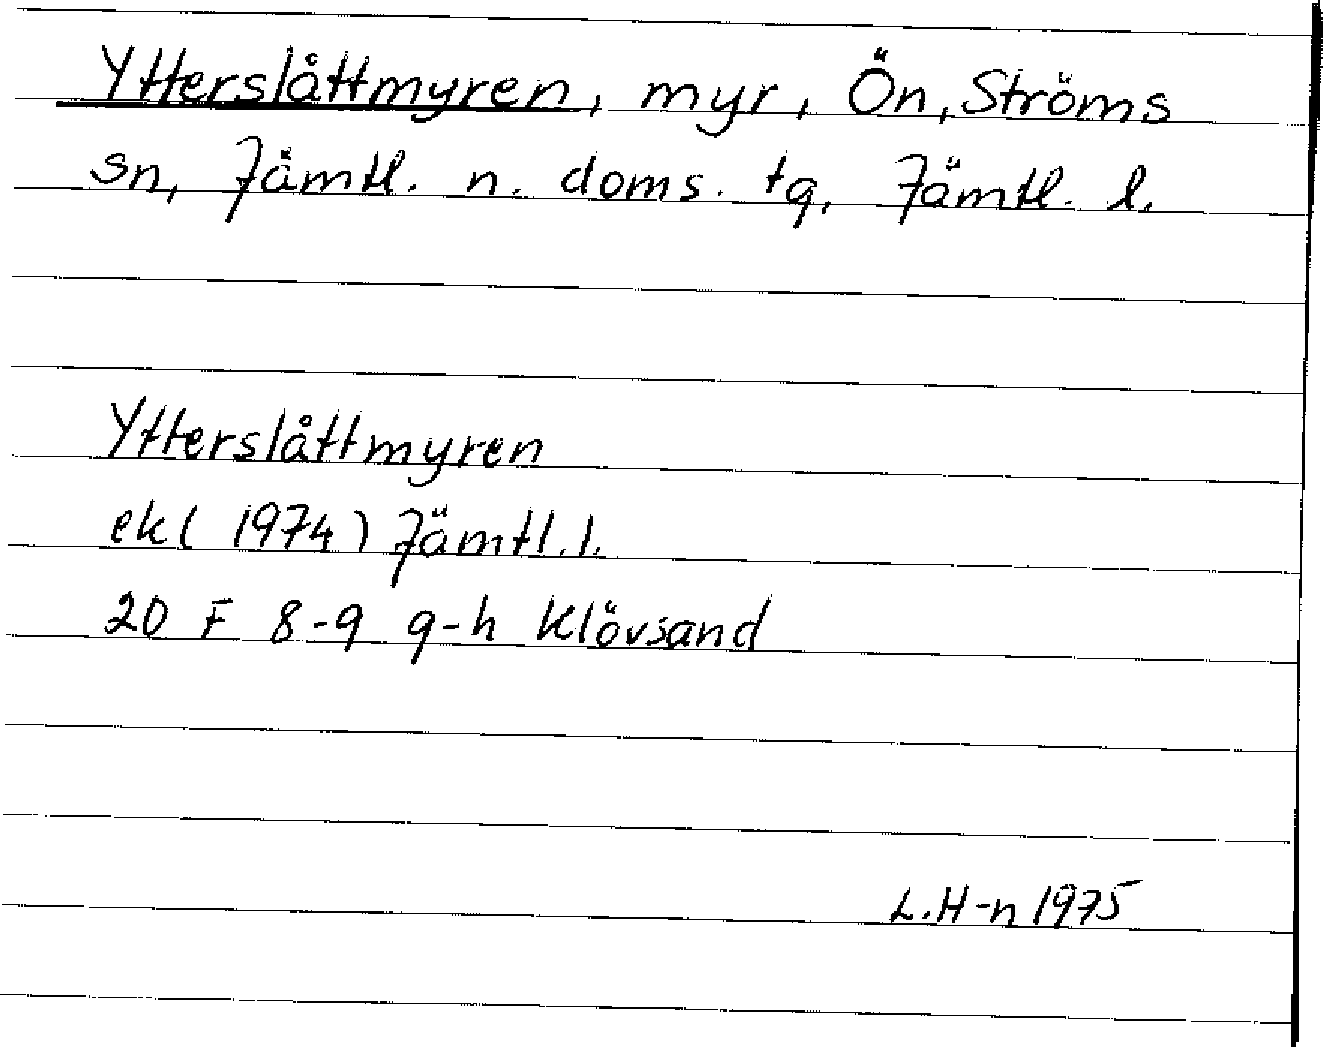 Ytterslåttmyren, myr, Ön, Ströms
sn, Jämtl. n. doms. tg, Jämtl. l.
Ytterslåttmyren
ek (1974) Jämtl. l.
20 F 8-9 g-h Klövsand
L.H-n 1975